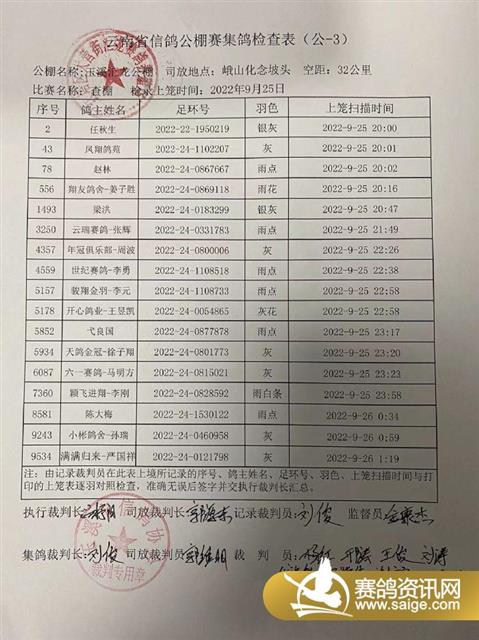 云南省信鸽公棚赛集鸽检查表（公-3）
公棚名称:玉溪汇龙公棚 司放地点：峨山化念坡头 空距：32公里
比赛名称：查棚 检录上笼时间：2022年9月25日
序号 鸽主姓名 足环号 羽色 上笼扫描时间
2 任秋生 2022-22-1950219 银灰 2022-9-25 20:00
43 凤翔鸽苑 2022-24-1102207 灰 2022-9-25 20:01
78 赵林 2022-24-0867667 雨点 2022-9-25 20:02
556 翔友鸽舍-姜子胜 2022-24-0869118 雨花 2022-9-25 20:16
1493 梁洪 2022-24-0183299 银灰 2022-9-25 20:47
3250 云瑞赛鸽-张辉 2022-24-0331783 雨点 2022-9-25 21:49
4357 年冠俱乐部-周波 2022-24-0800006 灰 2022-9-25 22:26
4559 世纪赛鸽-李勇 2022-24-1108518 雨点 2022-9-25 22:38
5157 骏翔金羽-李元 2022-24-1108733 雨点 2022-9-25 22:58
5178 开心鸽业-王昱凯 2022-24-0054865 灰花 2022-9-25 22:58
5852 弋良国 2022-24-0877878 雨点 2022-9-25 23:17
5934 天鸽金冠-徐子翔 2022-24-0801773 灰 2022-9-25 23:20
6087 六一赛鸽-马明方 2022-24-0815021 灰 2022-9-25 23:23
7360 颖飞进翔-李刚 2022-24-0828592 雨白条 2022-9-25 23:58
8581 陈大梅 2022-24-1530122 雨点 2022-9-26 0:34
9243 小彬鸽舍-孙瑞 2022-24-0460958 灰 2022-9-26 0:59
9534 满满归来-严国祥 2022-24-0121798 灰 2022-9-26 1:19
注：由记录裁判员在此表上填所记录的序号、鸽主姓名、足环号、羽色、上笼扫描时间与打
印的上笼表逐羽对照检查，准确无误后签字并交执行裁判长汇总。
执行裁判长 司放裁判长 记录裁判员 刘俊 监督员
集鸽裁判长 刘俊 司放裁判员 裁 判 员：
裁判专用章
赛鸽资讯网
www.saige.com